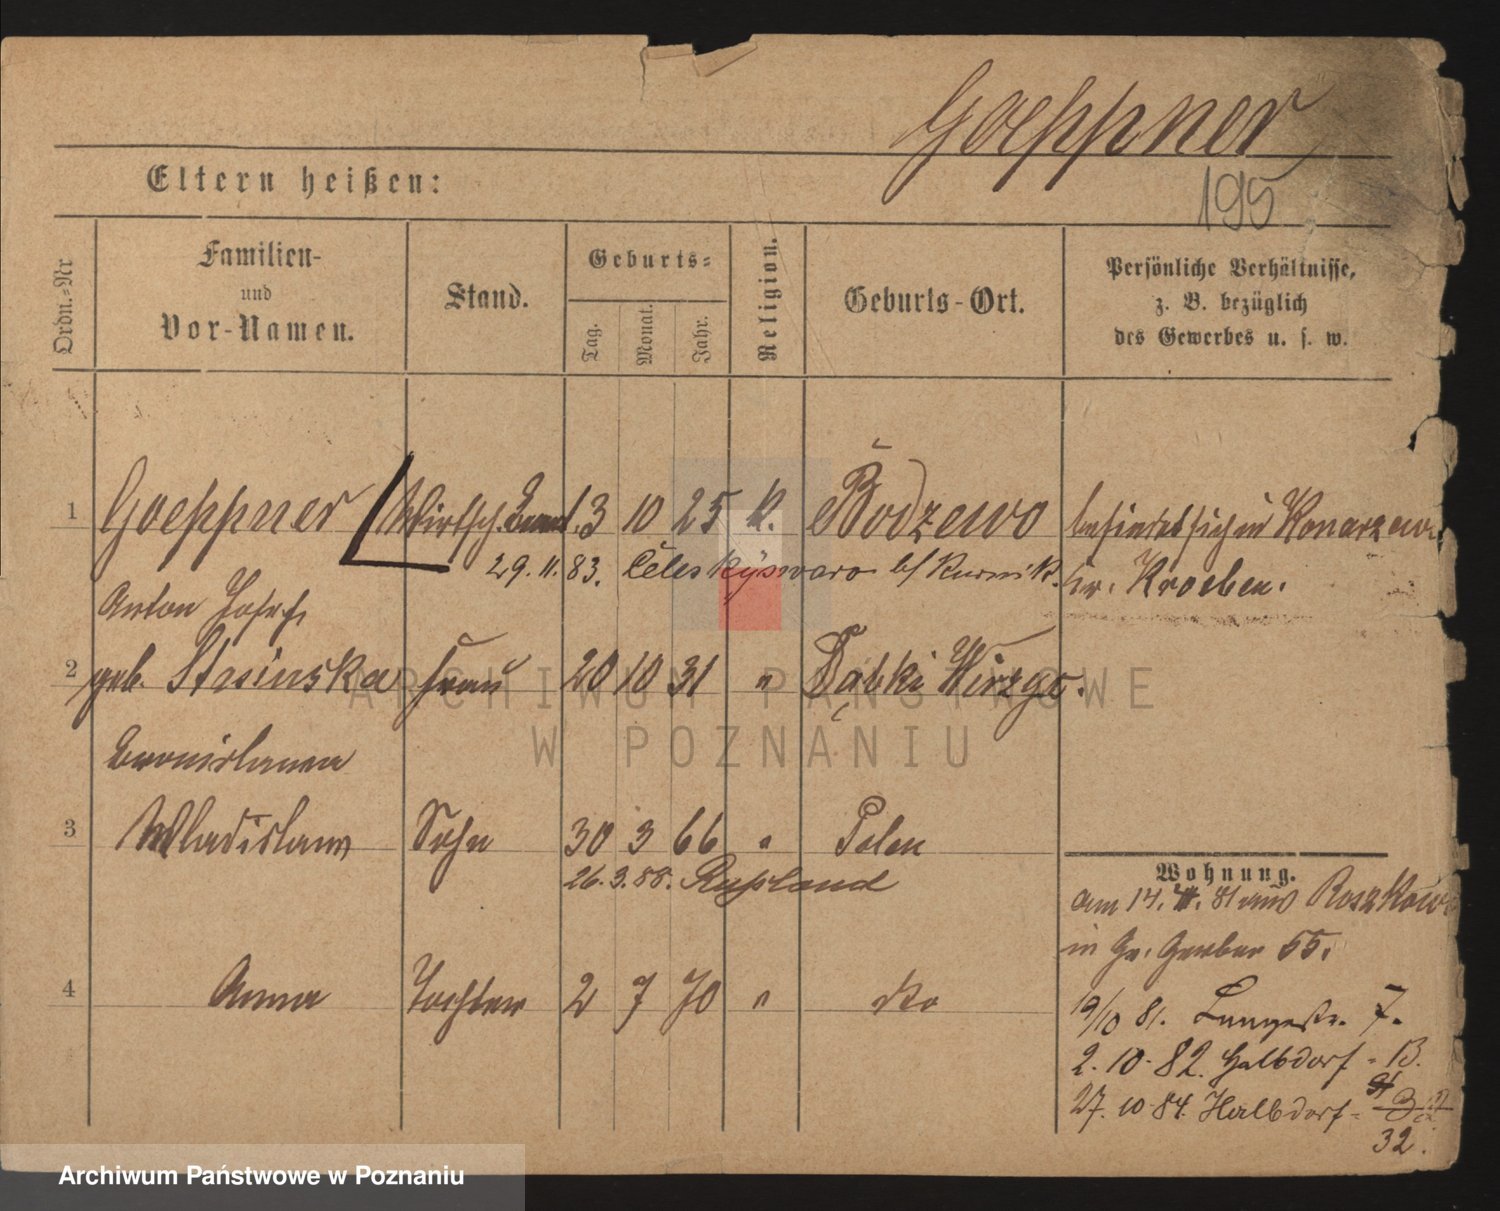 Goeppner
195
Eltern heißen:
Ordn.-Nr
Familien-
und
Vor-Namen.
Stand.
Geburts-
Tag.
Monat.
Jahr.
Religion.
Geburts-Ort.
Persönliche Verhältnisse,
z. B. bezüglich
des Gewerbes u. s. w.
1 Goeppner Wirtsch. 13 10 25 k. Bodzewo befindet sich in Konarzewo
29.11.83. b/ Kurnik. Kr. Kroeben.
Anton Josef
2 geb. Stasinska Frau 20 10 31 " Dąbki Wirzyc.
Bronislawa
3 Wladislaus Sohn 30 3 66 " Polen
26.3.88. Russland
4 Anna Tochter 2 7 70 " dto
Wohnung.
am 14. 4. 81 aus Roszkowo
in Gr. Gerber 55.
19/10 81. Langestr. 7.
2. 10. 82. Halbdorf - 13.
27. 10. 84. Halbdorf -
32.
ARCHIWUM PAŃSTWOWE
W POZNANIU
Archiwum Państwowe w Poznaniu